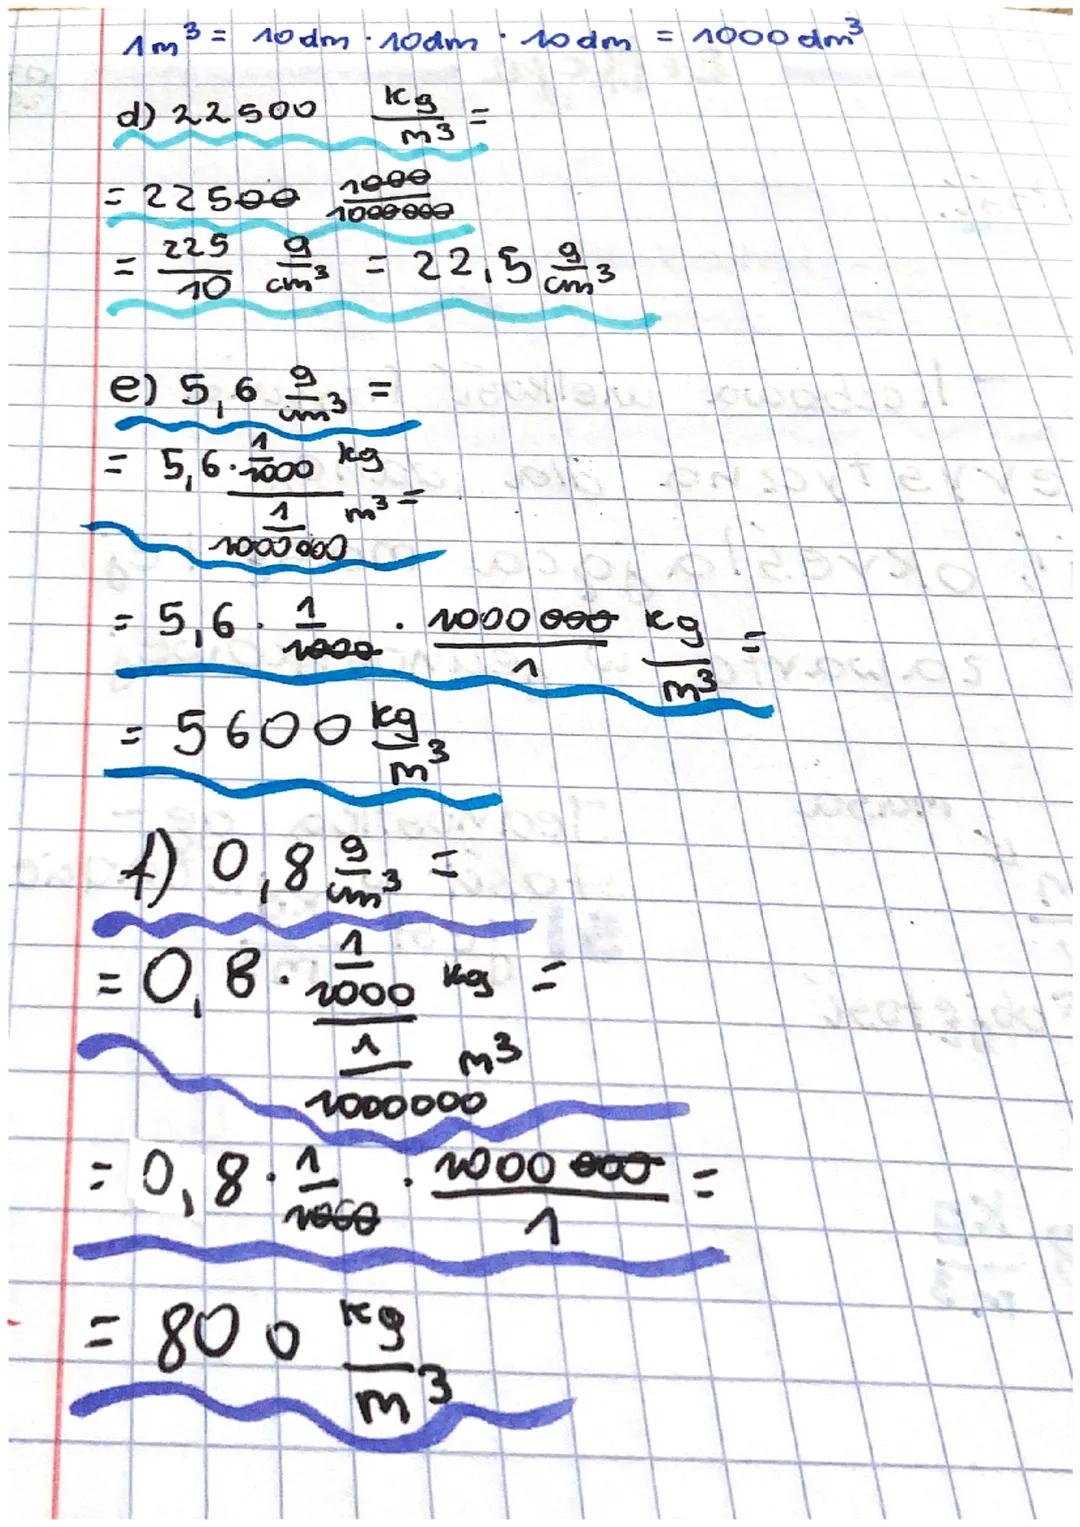 1m³ = 10dm · 10dm · 10dm = 1000dm³
d) 22500 kg/m³ =
= 22500 1000/1000000
= 225/10 g/cm³ = 22,5 g/cm³
e) 5,6 g/cm³ =
= 5,6 · 1/1000 kg / 1/1000000 m³ =
= 5,6 · 1/1000 · 1000000/1 kg/m³ =
= 5600 kg/m³
f) 0,8 g/cm³ =
= 0,8 · 1/1000 kg / 1/1000000 m³ =
= 0,8 · 1/1000 · 1000000/1 =
= 800 kg/m³